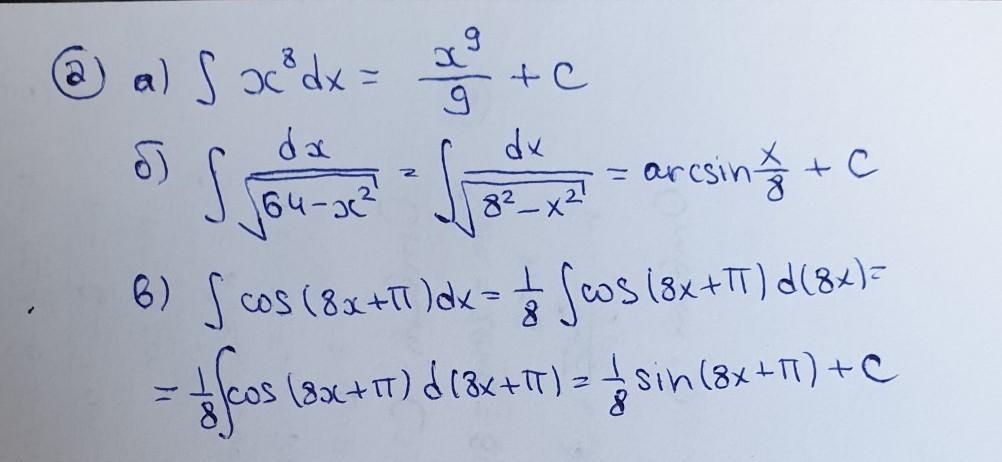 ② а) ∫ x⁸dx = x⁹/9 + C
б) ∫ dx/√(64-x²) = ∫ dx/√(8²-x²) = arcsin x/8 + C
в) ∫ cos(8x+π)dx = 1/8 ∫cos(8x+π) d(8x)=
= 1/8 ∫cos(8x+π) d(8x+π) = 1/8 sin(8x+π) + C